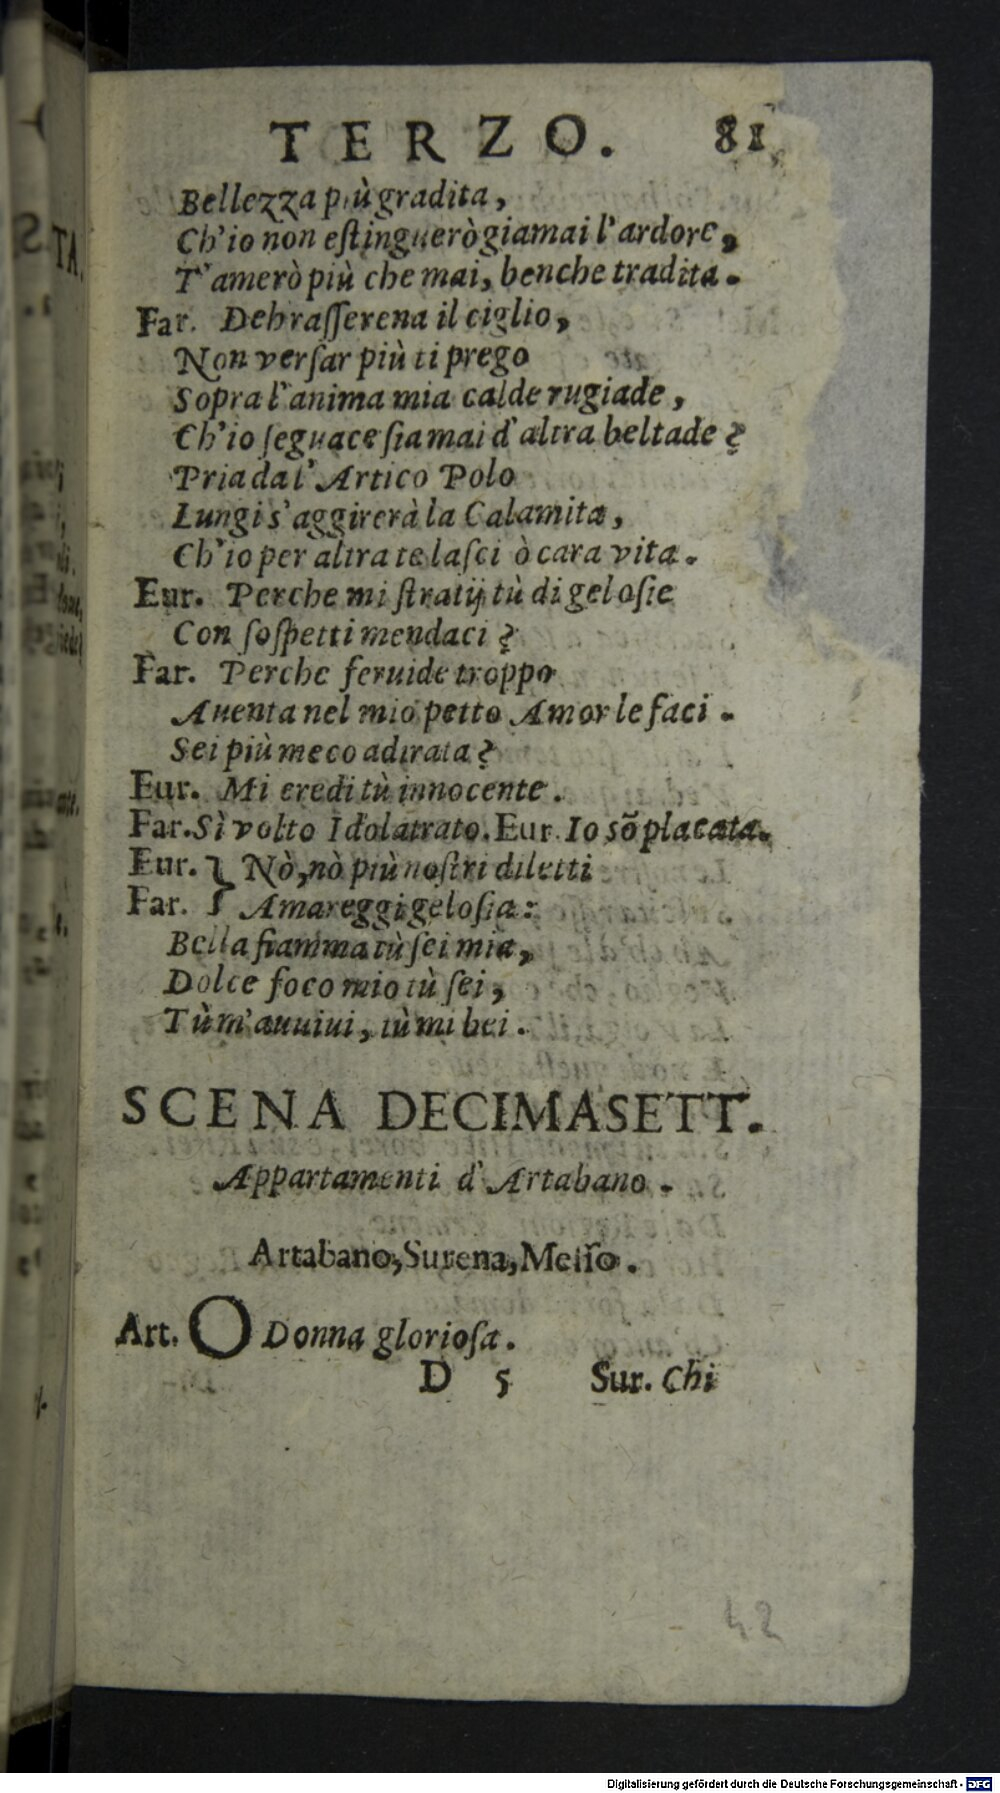 TERZO. 81
Bellezza più gradita,
Ch'io non eſtinguerò giamai l'ardore,
T'amerò più che mai, benche tradita.
Far. Deh raſſerena il ciglio,
Non verſar più ti prego
Sopra l'anima mia calde rugiade,
Ch'io ſeguace ſia mai d'altra beltade?
Pria da l'Artico Polo
Lungi s'aggirerà la Calamita,
Ch'io per altra te laſci ò cara vita.
Eur. Perche mi ſtratij tù di geloſie
Con ſoſpetti mendaci?
Far. Perche feruide troppo
Auenta nel mio petto Amor le faci.
Sei più meco adirata?
Eur. Mi credi tù innocente.
Far. Sì volto Idolatrato. Eur. Io sõ placata.
Eur. } Nò, nò più noſtri diletti
Far. } Amareggi geloſia:
Bella fiamma tù ſei mia,
Dolce foco mio tù ſei,
Tù m'auuiui, tù mi bei.
SCENA DECIMASETT.
Appartamenti d'Artabano.
Artabano, Surena, Meſſo.
Art. O Donna glorioſa.
D 5 Sur. Chi
42
Digitalisierung gefördert durch die Deutsche Forschungsgemeinschaft - DFG